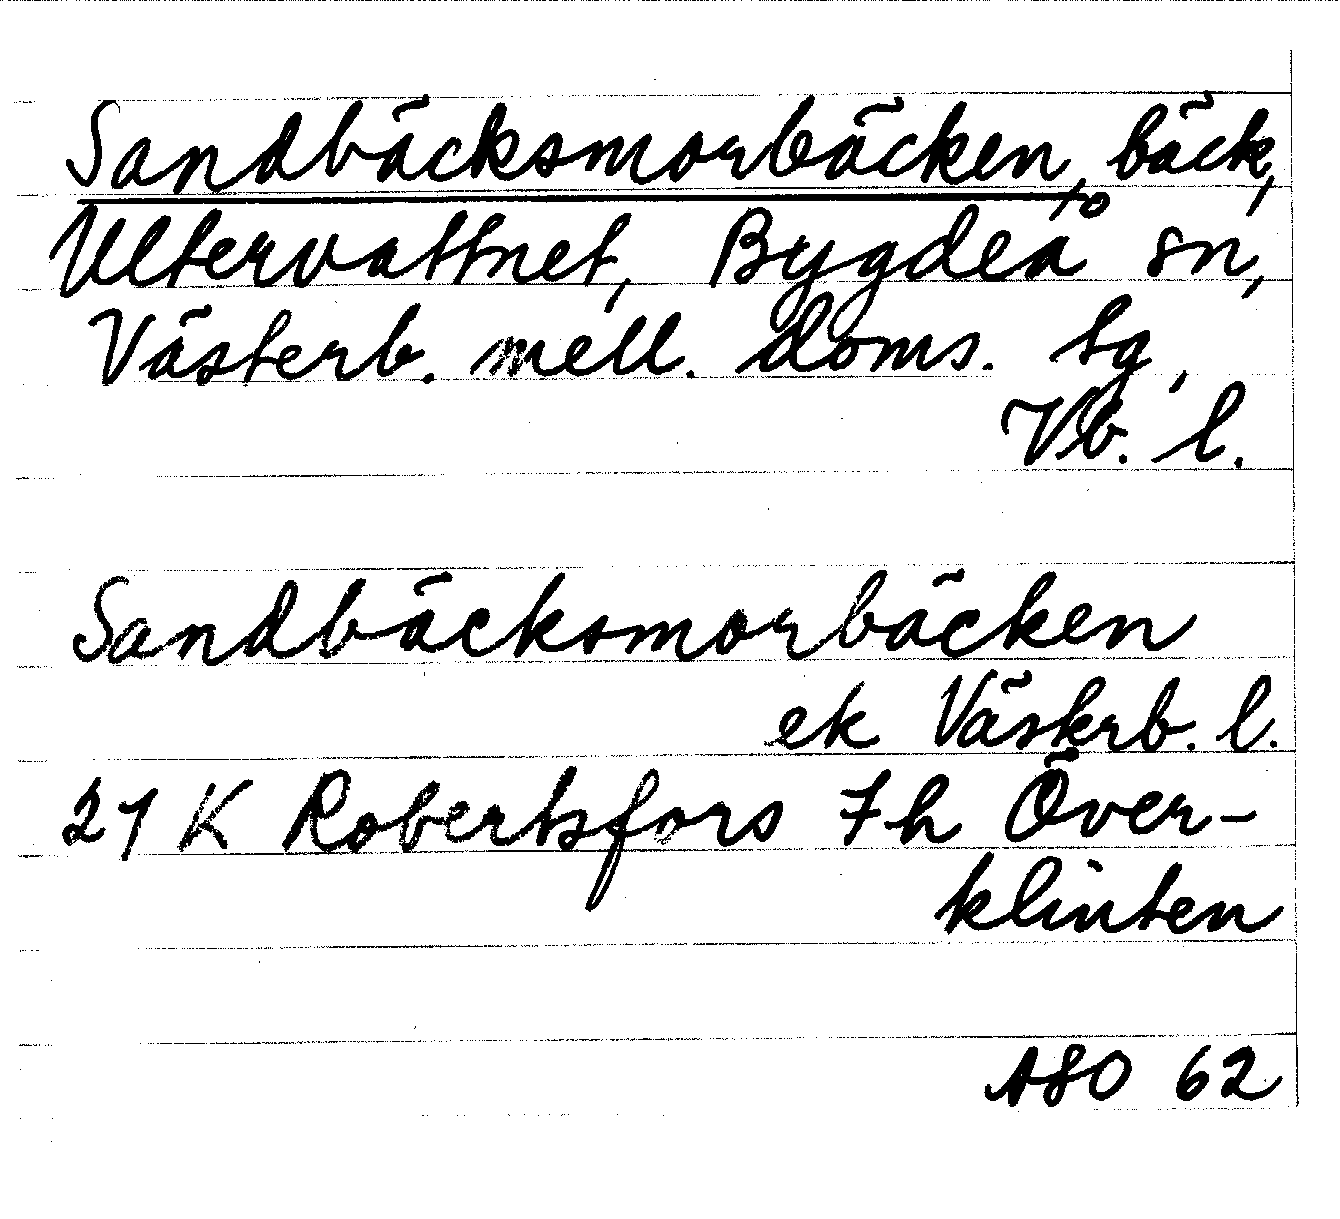 Sandbäcksmorbäcken, bäck,
Ultervattnet, Bygdeå sn,
Västerb. mell. doms. tg,
Vb. l.
Sandbäcksmorbäcken
ek Västerb. l.
21 K Robertsfors 7h Över-
klinten
ASO 62